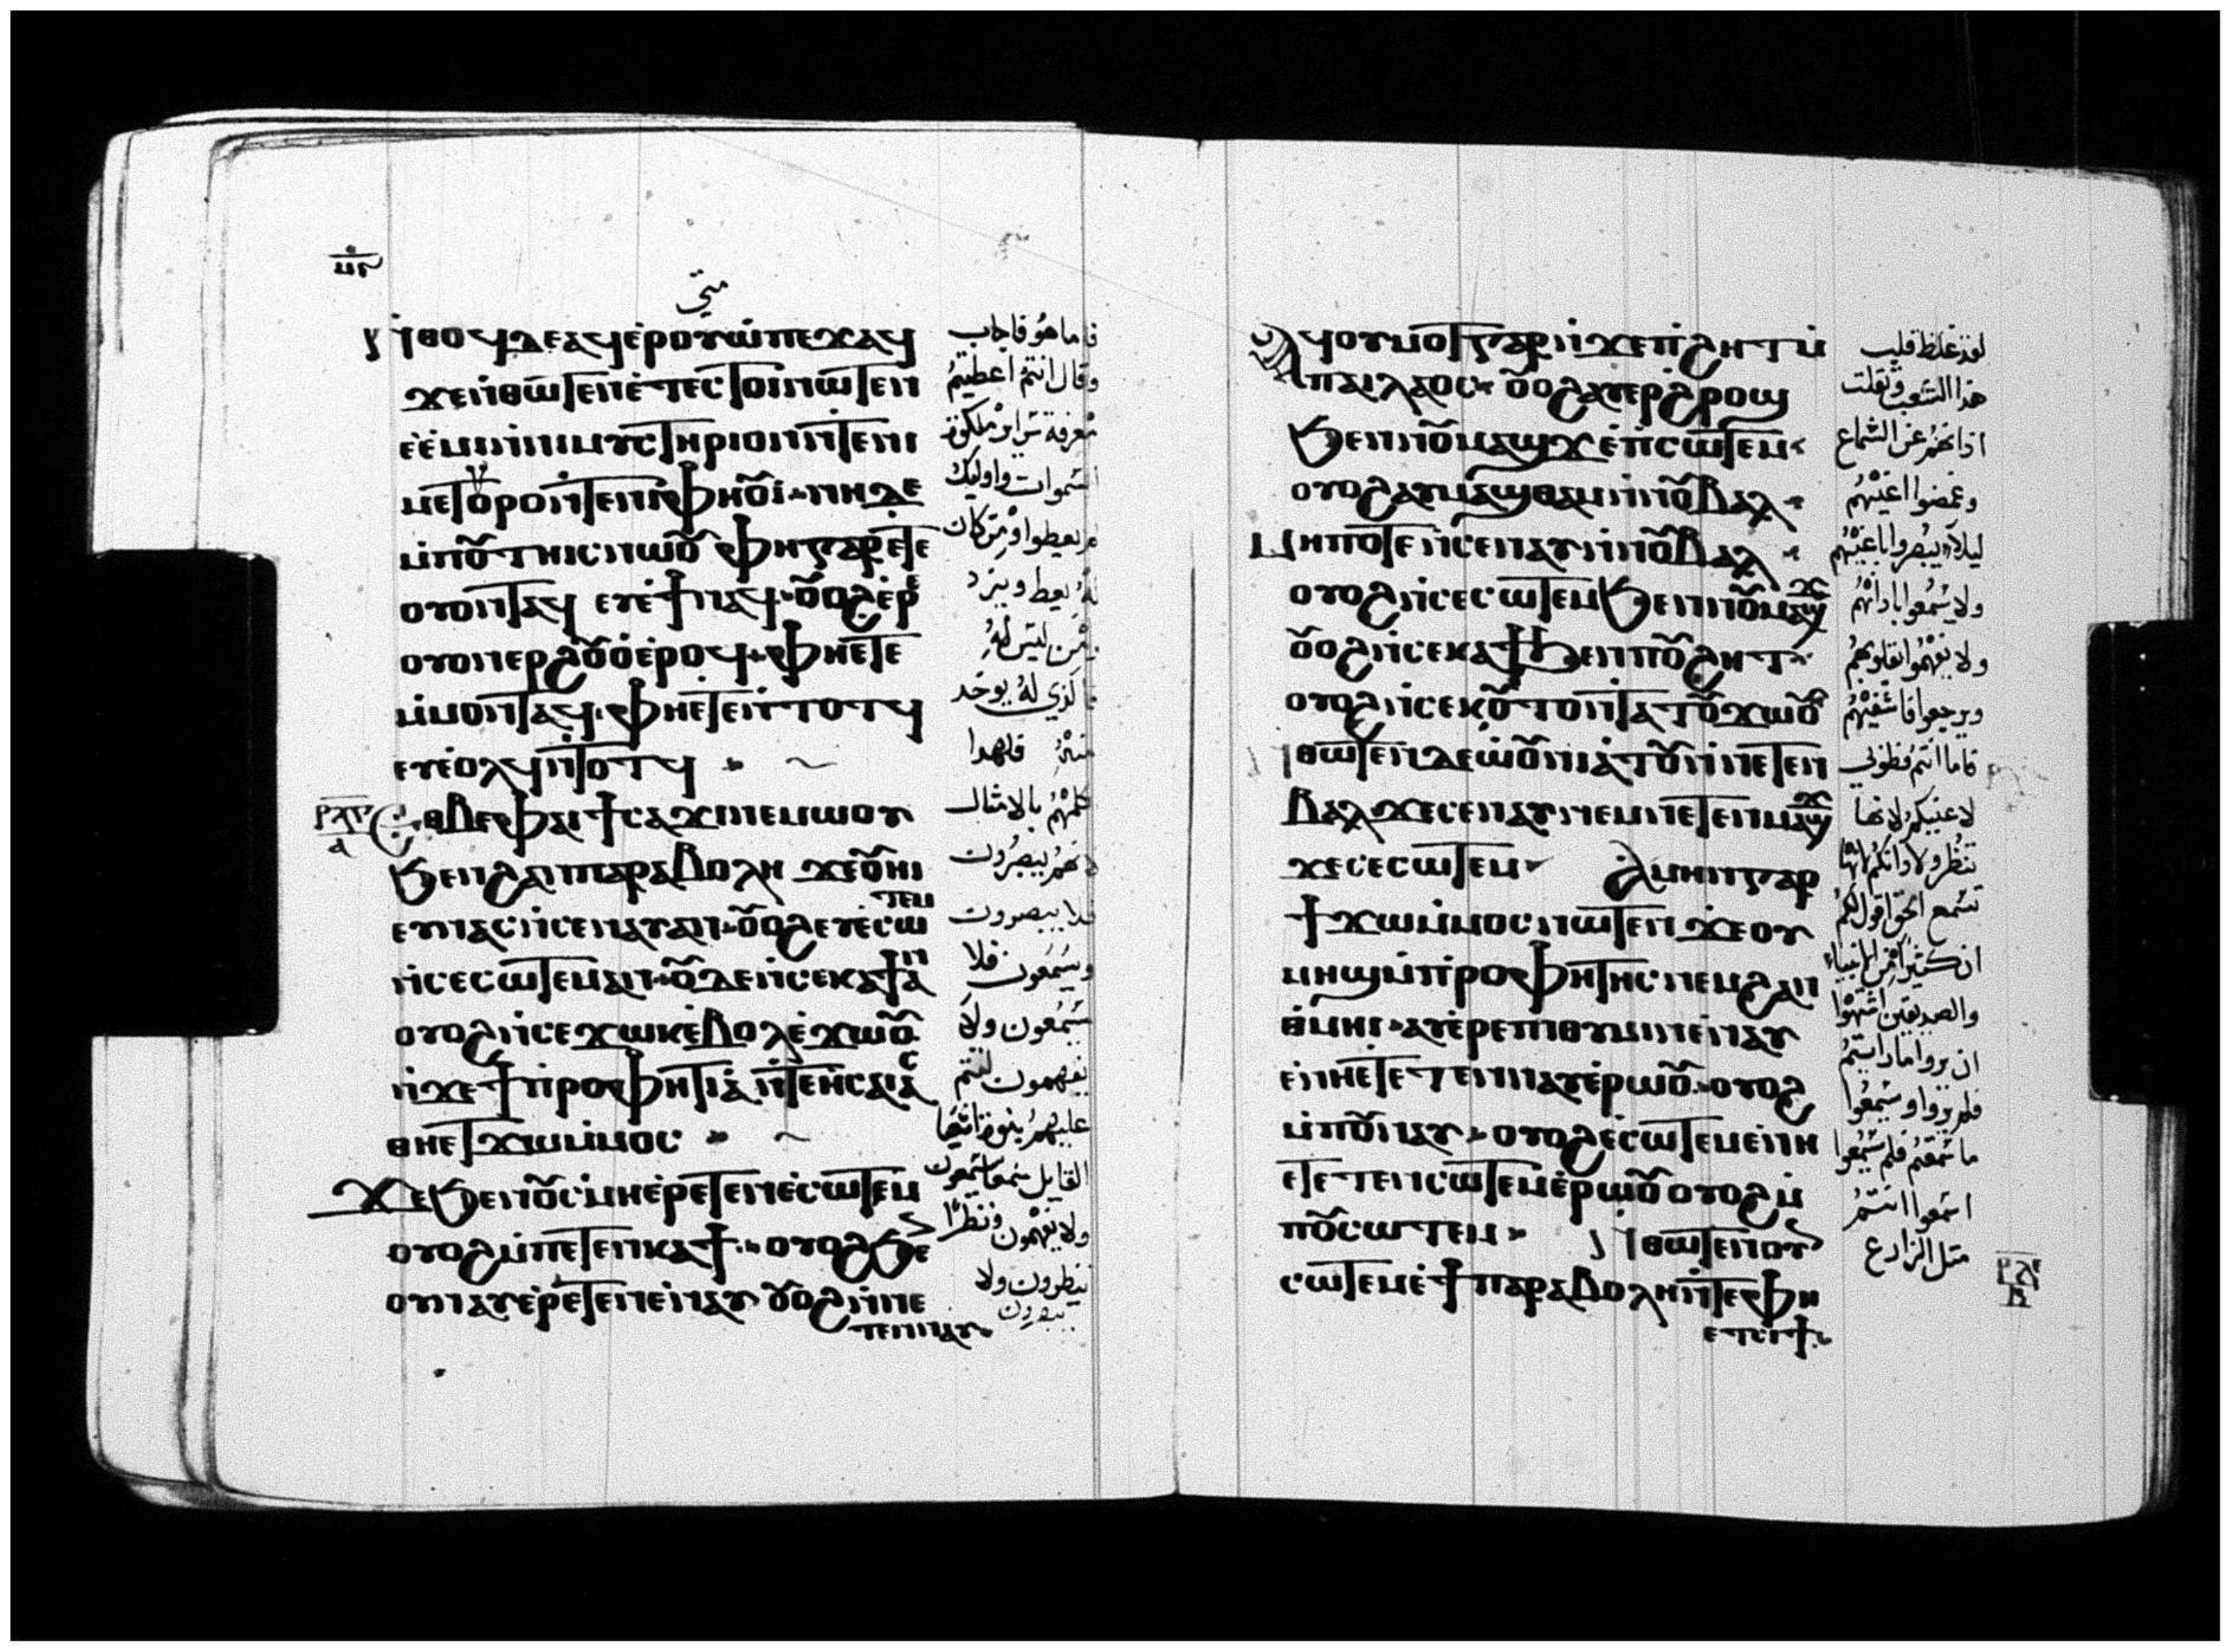 متى
ⲛ̇ⲑⲟϥ ⲇⲉ ⲁϥⲉ̇ⲣⲟⲩⲱ̇ ⲡⲉϫⲁϥ
ϫⲉ ⲛ̇ⲑⲱⲧⲉⲛ ⲡⲉ̇ⲧⲉⲥⲧⲟⲓ ⲛⲱⲧⲉⲛ
ⲉ̇ⲉ̇ⲙⲓ ⲉ̇ⲛⲓⲙⲩⲥⲧⲏⲣⲓⲟⲛ ⲛ̇ⲧⲉ ϯ
ⲙⲉⲧⲟⲩⲣⲟ ⲛ̇ⲧⲉ ⲛⲓⲫⲏⲟⲩⲓ̇ ⲛⲏ ⲇⲉ
ⲙ̇ⲡⲟⲩⲧⲏⲓⲥ ⲛⲱⲟⲩ ⲫⲏ ⲅⲁⲣ ⲉ̇ⲧⲉ
ⲟⲩⲟⲛⲧⲁϥ ⲉⲩⲉ̇ϯ ⲛⲁϥ ⲟⲩⲟϩ ⲉ̇ⲣⲉ
ⲟⲩⲟⲛ ⲉⲣϩⲟⲩⲟ̇ ⲉ̇ⲣⲟϥ ⲫⲏ ⲉⲧⲉ
ⲙ̇ⲙⲟⲛⲧⲁϥ ⲫⲏ ⲉⲧⲉⲛⲧⲟⲧϥ
ⲉⲩⲉ̇ⲟⲗϥ ⲛ̇ⲧⲟⲧϥ
ⲉⲑⲃⲉ ⲫⲁⲓ ϯⲥⲁϫⲓ ⲛⲉⲙⲱⲟⲩ
ϧⲉⲛ ϩⲁⲛⲡⲁⲣⲁⲃⲟⲗⲏ ϫⲉ ⲟⲩⲏⲓ
ⲉⲩⲛⲁⲩ ⲛ̇ⲥⲉⲛⲁⲩ ⲁⲛ ⲟⲩⲟϩ ⲉⲩⲉ̇ⲥⲱⲧⲉⲙ
ⲛ̇ⲥⲉⲥⲱⲧⲉⲙ ⲁⲛ ⲟⲩⲇⲉ ⲛ̇ⲥⲉⲕⲁϯ ⲁⲛ
ⲟⲩⲟϩ ⲛ̇ⲥⲉϫⲱⲕ ⲉ̇ⲃⲟⲗ ⲉ̇ϫⲱⲟⲩ
ⲛ̇ϫⲉ ϯⲡⲣⲟⲫⲏⲧⲓⲁ̇ ⲛ̇ⲧⲉ ⲏ̇ⲥⲁⲓⲁⲥ
ⲑⲏ ⲉⲧϫⲱ ⲙ̇ⲙⲟⲥ
ϫⲉ ϧⲉⲛ ⲟⲩⲥⲙⲏ ⲉ̇ⲣⲉⲧⲉⲛⲉ̇ⲥⲱⲧⲉⲙ
ⲟⲩⲟϩ ⲙ̇ⲡⲉⲧⲉⲛⲕⲁϯ ⲟⲩⲟϩ ϧⲉⲛ
ⲟⲩⲛⲁⲩ ⲉ̇ⲣⲉⲧⲉⲛⲉⲛⲁⲩ ⲟⲩⲟϩ ⲛ̇ⲛⲉ
ⲧⲉⲛⲛⲁⲩ
فاما هو فاجاب
وقال انتم اعطيتم
معرفة سراير ملكوة
السموات واوليك
لم يعطوا ومن كان
له يعطى ويزد
ومن ليس له
فالذي له يوخد
منه فلهدا
كلمتهم بالامثال
لانهم يبصرون
فلا يبصرون
ويسمعون فلا
يسمعون ولا
يفهمون لتتم
عليهم نبوة اشعيا
القايل سمعا تسمعون
ولا تفهمون ونظرا
تنظرون ولا
تبصرون
ⲁϥⲟⲩⲙⲟⲧ ⲅⲁⲣ ⲛ̇ϫⲉ ⲡ̇ϩⲏⲧ ⲙ̇
ⲡⲁⲓⲗⲁⲟⲥ ⲟⲩⲟϩ ⲁⲩⲉⲣϩⲣⲟϣ
ϧⲉⲛ ⲛⲟⲩⲙⲁϣϫ ⲉ̇ⲡⲥⲱⲧⲉⲙ
ⲟⲩⲟϩ ⲁⲩⲙⲁϣⲑⲁⲙ ⲛ̇ⲛⲟⲩⲃⲁⲗ
ⲙⲏⲡⲟⲧⲉ ⲛ̇ⲥⲉⲛⲁⲩ ⲛ̇ⲛⲟⲩⲃⲁⲗ
ⲟⲩⲟϩ ⲛ̇ⲥⲉⲥⲱⲧⲉⲙ ϧⲉⲛ ⲛⲟⲩⲙⲁϣϫ
ⲟⲩⲟϩ ⲛ̇ⲥⲉⲕⲁϯ ϧⲉⲛ ⲡⲟⲩϩⲏⲧ
ⲟⲩⲟϩ ⲛ̇ⲥⲉⲕⲟⲧⲟⲩ ⲛ̇ⲧⲁⲧⲟⲩϫⲱⲟⲩ
ⲛ̇ⲑⲱⲧⲉⲛ ⲇⲉ ⲱ̇ⲟⲩⲛⲓⲁ̇ⲧⲟⲩ ⲛ̇ⲛⲉⲧⲉⲛ
ⲃⲁⲗ ϫⲉ ⲥⲉⲛⲁⲩ ⲛⲉⲙ ⲛⲉⲧⲉⲛⲙⲁϣϫ
ϫⲉ ⲥⲉⲥⲱⲧⲉⲙ ⲁⲙⲏⲛ ⲅⲁⲣ
ϯϫⲱ ⲙ̇ⲙⲟⲥ ⲛⲱⲧⲉⲛ ϫⲉ ⲟⲩ
ⲙⲏϣ ⲙ̇ⲡⲣⲟⲫⲏⲧⲏⲥ ⲛⲉⲙ ϩⲁⲛ
ⲑ̇ⲙⲏⲓ ⲁⲩⲉ̇ⲣⲉⲡⲓⲑⲩⲙⲓⲛ ⲉ̇ⲛⲁⲩ
ⲉ̇ⲛⲏ ⲉⲧⲉⲧⲉⲛⲛⲁⲩ ⲉ̇ⲣⲱⲟⲩ ⲟⲩⲟϩ
ⲙ̇ⲡⲟⲩⲛⲁⲩ ⲟⲩⲟϩ ⲉ̇ⲥⲱⲧⲉⲙ ⲉ̇ⲛⲏ
ⲉⲧⲉⲧⲉⲛⲥⲱⲧⲉⲙ ⲉ̇ⲣⲱⲟⲩ ⲟⲩⲟϩ ⲙ̇
ⲡⲟⲩⲥⲱⲧⲉⲙ ⲛ̇ⲑⲱⲧⲉⲛ ⲟⲩⲛ
ⲥⲱⲧⲉⲙ ⲉ̇ϯⲡⲁⲣⲁⲃⲟⲗⲏ ⲛ̇ⲧⲉ ⲫⲏ
ⲉⲧⲥⲓϯ
لقد غلظ قلب
هدا الشعب وثقلت
اذانهم عن السماع
وغمضوا اعينهم
ليلا يبصروا باعينهم
ولا يسمعوا باذانهم
ولا يفهموا بقلوبهم
ويرجعوا فاشفيهم
فاما انتم فطوبى
لاعينكم لانها
تنظر ولاذانكم لانها
تسمع الحق اقول لكم
ان كثيرا من الانبياء
والصديقين اشتهوا
ان يروا ما رايتم
فلم يروا وسمعوا
ما سمعتم فلم يسمعوا
اسمعوا انتم
مثل الزارع